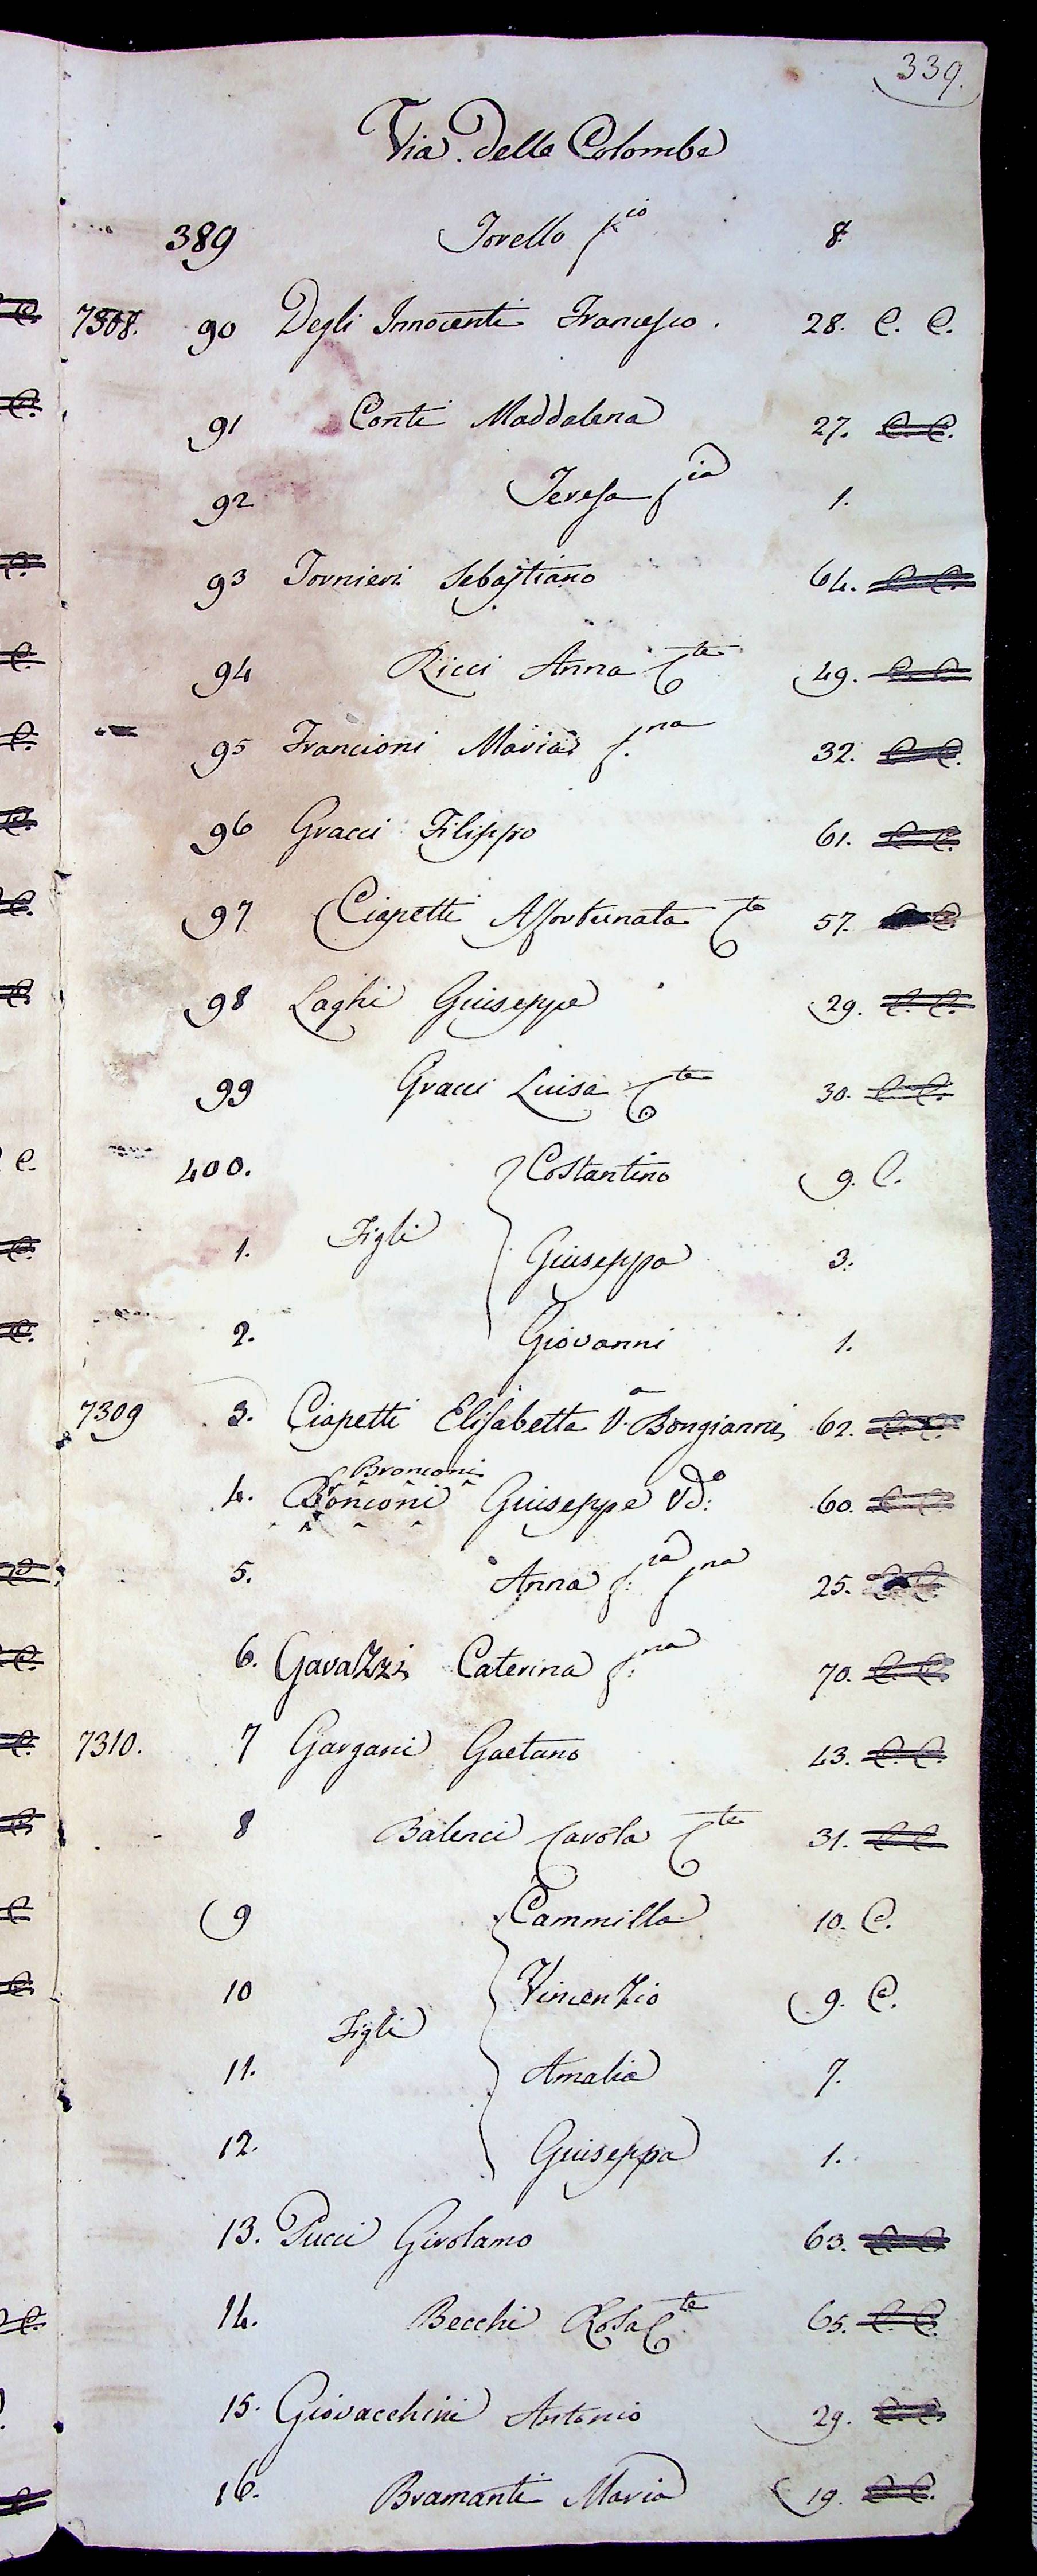 339.
Via delle Colombe
389 Torello f.cio 8.
7308. 90 Degli Innocenti Francesco. 28. C. C.
91 Conti Maddalena 27. C. C.
92 Teresa f.ia 1.
93 Tornieri Sebastiano 64. C. C.
94 Ricci Anna C.te 49. C. C.
95 Francioni Maria f.na 32. C. C.
96 Gracci Filippo 61. C. C.
97 Ciapetti Assortunata C.te 57. C. C.
98 Laghi Giuseppe 29. C. C.
99 Gracci Luisa C.te 30. C. C.
400. Costantino 9. C.
Figli
1. Giuseppa 3.
2. Giovanni 1.
7309 3. Ciapetti Elisabetta V.a Bongianni 62. C. C.
Bronconi
4. Bonconi Giuseppe Vd.o 60. C. C.
5. Anna f.ia f.na 25. C. C.
6. Gavazzi Caterina f.na 70. C. C.
7310. 7 Gargani Gaetano 43. C. C.
8 Balenci Carola C.te 31. C. C.
9 Cammilla 10. C.
10 Vincenzio 9. C.
Figli
11. Amalia 7.
12. Giuseppa 1.
13. Pucci Girolamo 63. C. C.
14. Becchi Rosa C.te 65. C. C.
15. Giovacchini Antonio 29. C. C.
16. Bramanti Maria 19. C. C.